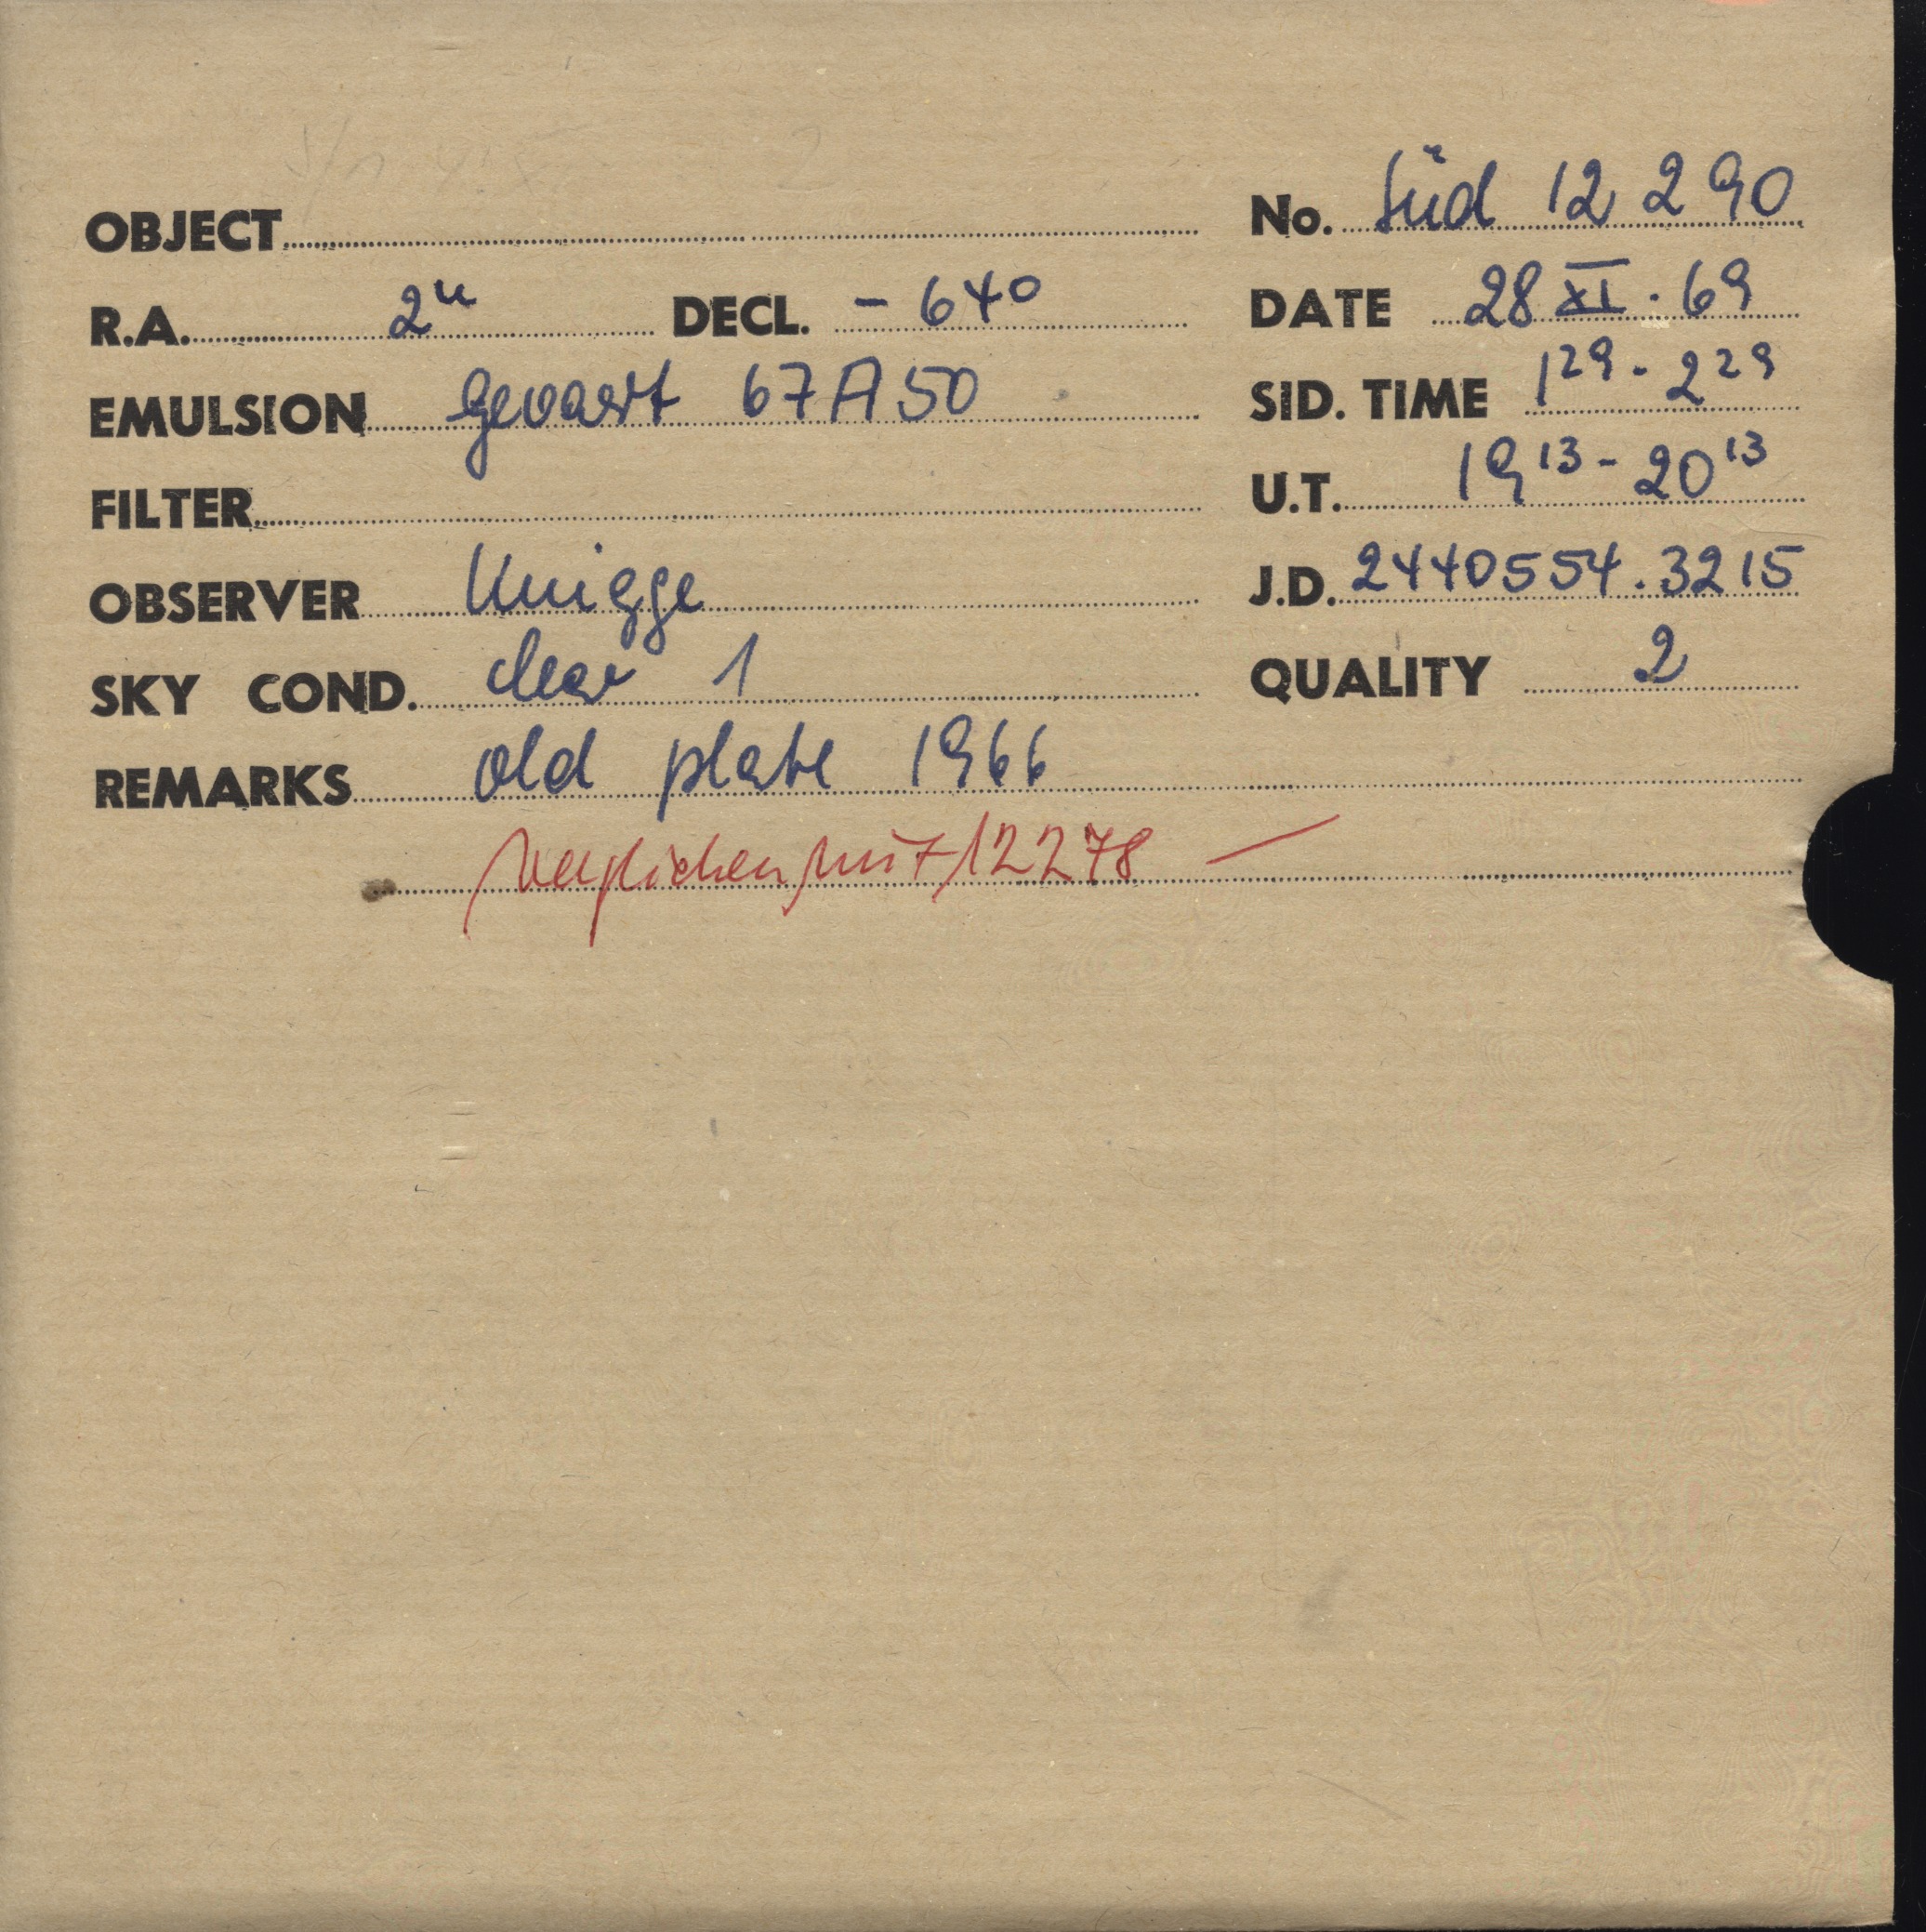 OBJECT No. Süd 12 290
R.A. 2ʰ DECL. - 64°
DATE 28 XI. 69
EMULSION Gevaert 67A50
SID. TIME 1²⁹ - 2²⁹
FILTER
U.T. 19¹³ - 20¹³
OBSERVER Knigge
J.D. 2440554.3215
SKY COND. clear 1
QUALITY 2
REMARKS old plate 1966
verglichen mit 12278 —